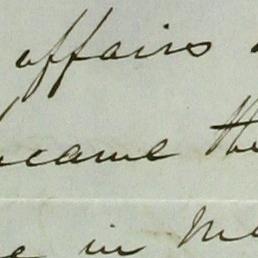 affairs
became the
in